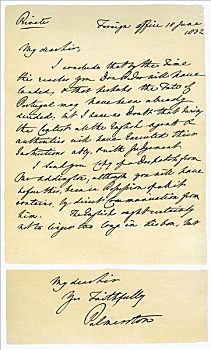 Private
Foreign Office 10 June
1832
My dear Sir,
I conclude that by the time
this reaches you Don Pedro will have
landed, & that perhaps the Fate of
Portugal may have been already
decided, but I have no Doubt that during
the Contest all the English agents &
authorities will have executed their
Instructions with Judgement.
I send you Copy of a Despatch from
Mr. Addington, although you will have
before this, been in possession of its
contents, by direct Communication from
him. The English ought certainly
not to linger too long in Lisbon, but
My dear Sir
Yrs Faithfully
Palmerston